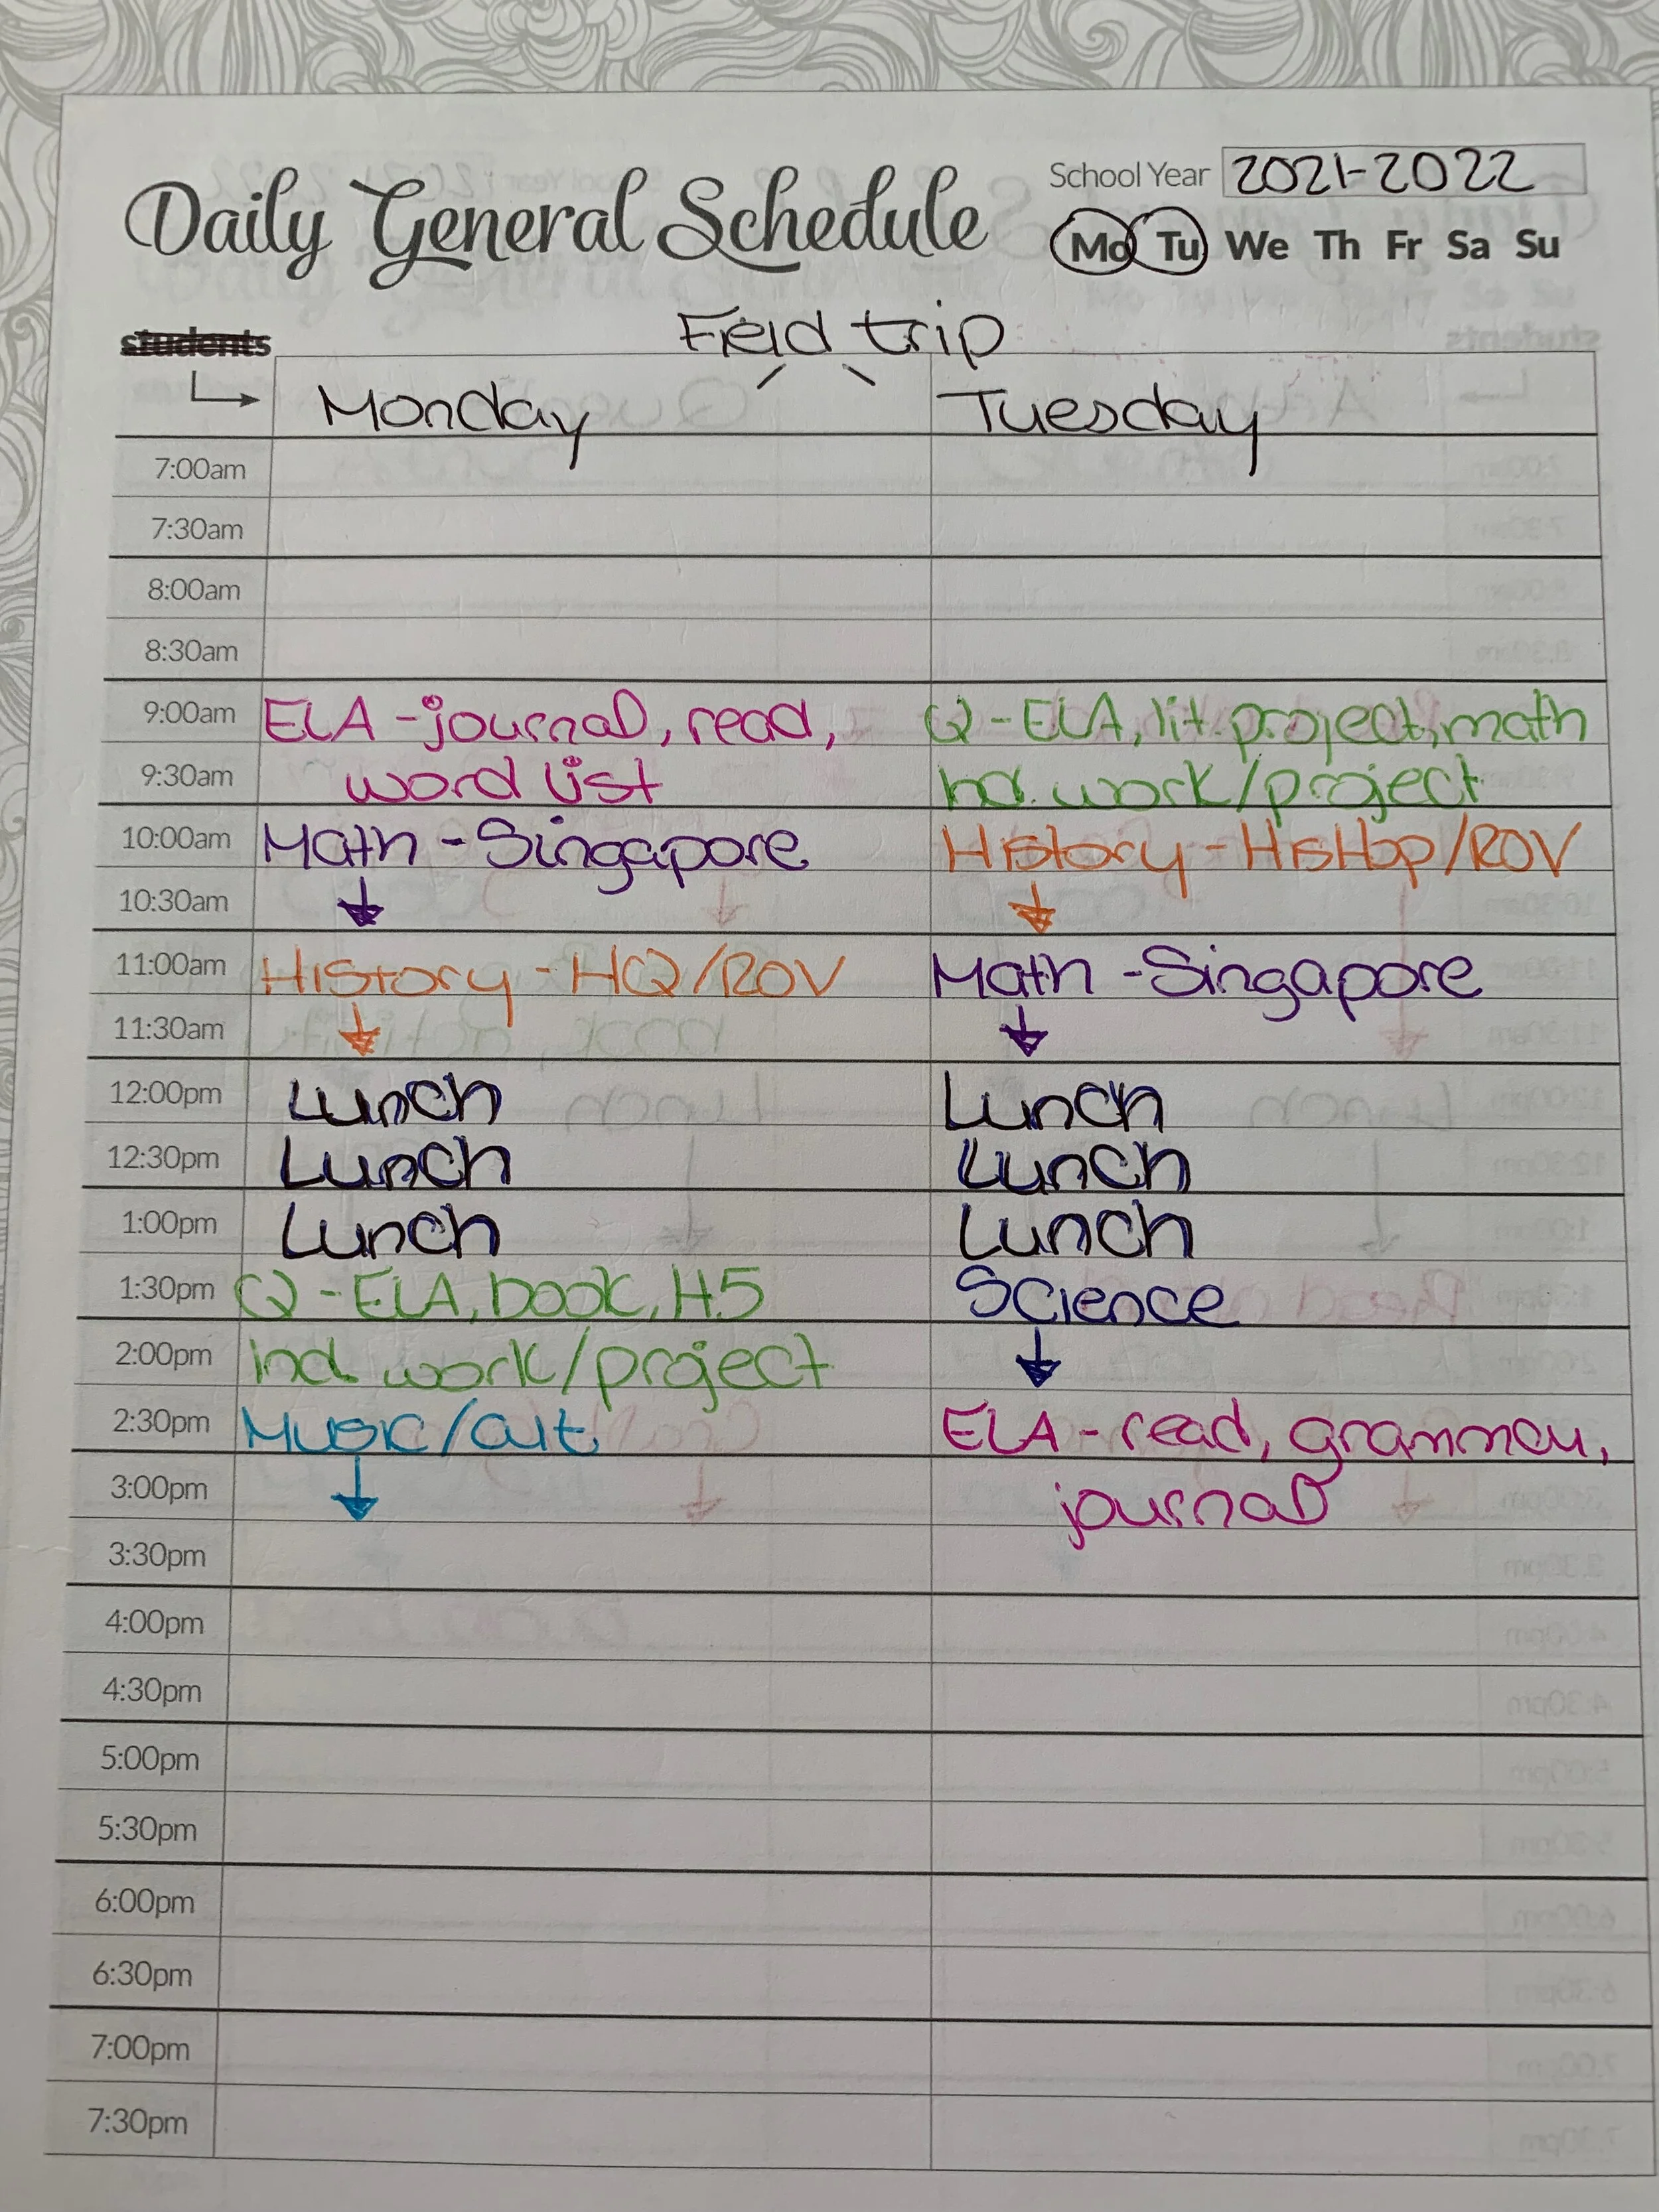 School Year 2021-2022
Daily General Schedule
Mo Tu We Th Fr Sa Su
Field trip
students
Monday Tuesday
7:00am
7:30am
8:00am
8:30am
9:00am ELA - journal, read, Q - ELA, lit. project, math
9:30am word list Ind. work/project
10:00am Math - Singapore History - HisHop/ROV
10:30am
11:00am History - HQ/ROV Math - Singapore
11:30am
12:00pm Lunch Lunch
12:30pm Lunch Lunch
1:00pm Lunch Lunch
1:30pm Q - ELA, book, H5 Science
2:00pm Ind. work/project
2:30pm Music/art ELA - read, grammar,
3:00pm journal
3:30pm
4:00pm
4:30pm
5:00pm
5:30pm
6:00pm
6:30pm
7:00pm
7:30pm